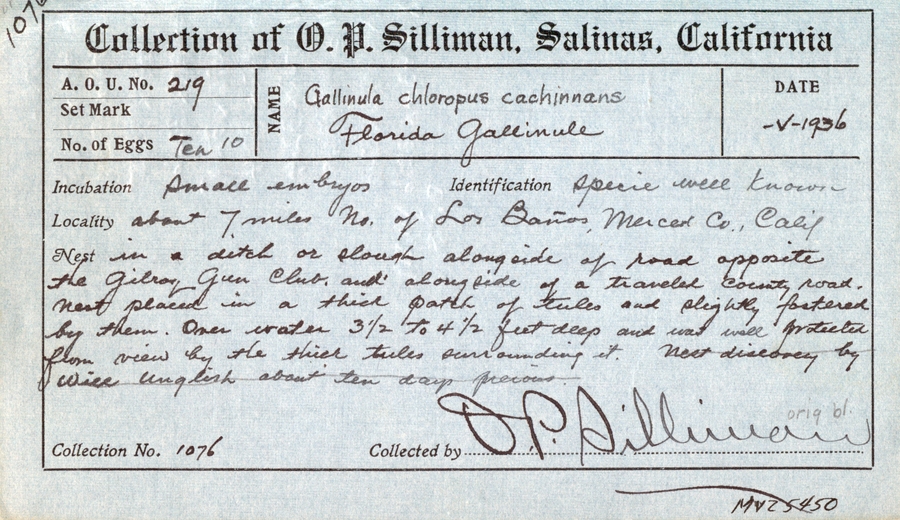 1076
Collection of O. P. Silliman, Salinas, California
A. O. U. No. 219
Set Mark
No. of Eggs Ten 10
NAME
Gallinula chloropus cachinnans
Florida Gallinule
DATE
-V-1936
Incubation Small embryos Identification specie well known
Locality about 7 miles No. of Los Baños, Merced Co., Calif
Nest in a ditch or slough alongside of road opposite
the Gilroy Gun Club, and alongside of a traveled county road.
Nest placed in a thick patch of tules and slightly fastened
by them. Over water 3 1/2 to 4 1/2 feet deep and was well protected
from view by the thick tules surrounding it. Nest discovey by
Will Unglish about ten days precious
O P. Silliman
orig bl.
Collection No. 1076 Collected by
MVZ 5450